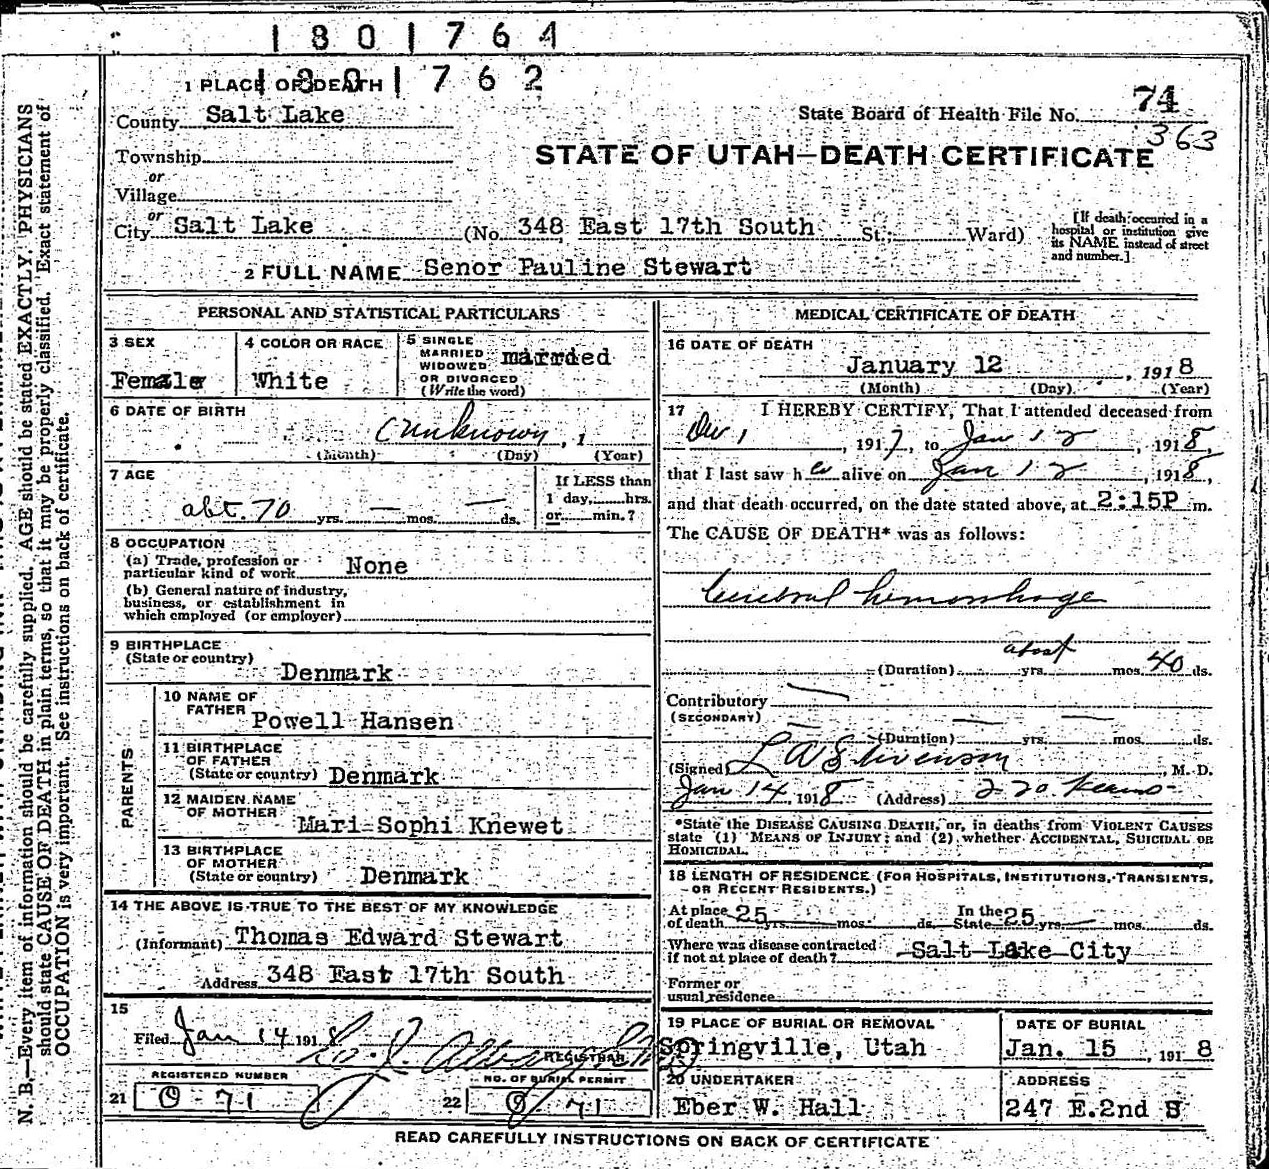 1801764
1801762
1 PLACE OF DEATH
County Salt Lake
State Board of Health File No. 74
363
Township
or
STATE OF UTAH—DEATH CERTIFICATE
Village
or
City Salt Lake (No. 348 East 17th South St.; Ward)
[If death occurred in a hospital or institution give its NAME instead of street and number.]
2 FULL NAME Senor Pauline Stewart
PERSONAL AND STATISTICAL PARTICULARS
3 SEX
Female
4 COLOR OR RACE
White
5 SINGLE
MARRIED
WIDOWED
OR DIVORCED
(Write the word)
marrded
6 DATE OF BIRTH
unknown, 1
(Month) (Day) (Year)
7 AGE
abt. 70 yrs. — mos. — ds.
If LESS than
1 day, hrs.
or min.?
8 OCCUPATION
(a) Trade, profession or
particular kind of work None
(b) General nature of industry,
business, or establishment in
which employed (or employer)
9 BIRTHPLACE
(State or country)
Denmark
PARENTS
10 NAME OF
FATHER Powell Hansen
11 BIRTHPLACE
OF FATHER
(State or country) Denmark
12 MAIDEN NAME
OF MOTHER Mari Sophi Knewet
13 BIRTHPLACE
OF MOTHER
(State or country) Denmark
14 THE ABOVE IS TRUE TO THE BEST OF MY KNOWLEDGE
(Informant) Thomas Edward Stewart
Address 348 East 17th South
15
Filed Jan 14 1918
REGISTRAR
REGISTERED NUMBER
21 0 71
NO. OF BURIAL PERMIT
22 0 71
MEDICAL CERTIFICATE OF DEATH
16 DATE OF DEATH
January 12, 1918
(Month) (Day) (Year)
17 I HEREBY CERTIFY, That I attended deceased from
Dec 1, 1917, to Jan 12, 1918,
that I last saw her alive on Jan 12, 1918,
and that death occurred, on the date stated above, at 2:15P m.
The CAUSE OF DEATH* was as follows:
Cerebral hemorrhage
(Duration) about yrs. mos. 40 ds.
Contributory —
(SECONDARY)
(Duration) — yrs. — mos. — ds.
(Signed) L A Stevenson, M. D.
Jan 14, 1918 (Address) 220 Kearns
*State the DISEASE CAUSING DEATH, or, in deaths from VIOLENT CAUSES
state (1) MEANS OF INJURY; and (2) whether ACCIDENTAL, SUICIDAL OR
HOMICIDAL.
18 LENGTH OF RESIDENCE (FOR HOSPITALS, INSTITUTIONS, TRANSIENTS,
OR RECENT RESIDENTS.)
At place
of death 25 yrs. mos. ds. In the
State 25 yrs. — mos. ds.
Where was disease contracted
if not at place of death? Salt Lake City
Former or
usual residence
19 PLACE OF BURIAL OR REMOVAL
Springville, Utah
DATE OF BURIAL
Jan. 15, 1918
20 UNDERTAKER
Eber W. Hall
ADDRESS
247 E.2nd S
READ CAREFULLY INSTRUCTIONS ON BACK OF CERTIFICATE
N. B.—Every item of information should be carefully supplied. AGE should be stated EXACTLY. PHYSICIANS
should state CAUSE OF DEATH in plain terms, so that it may be properly classified. Exact statement of
OCCUPATION is very important. See instructions on back of certificate.